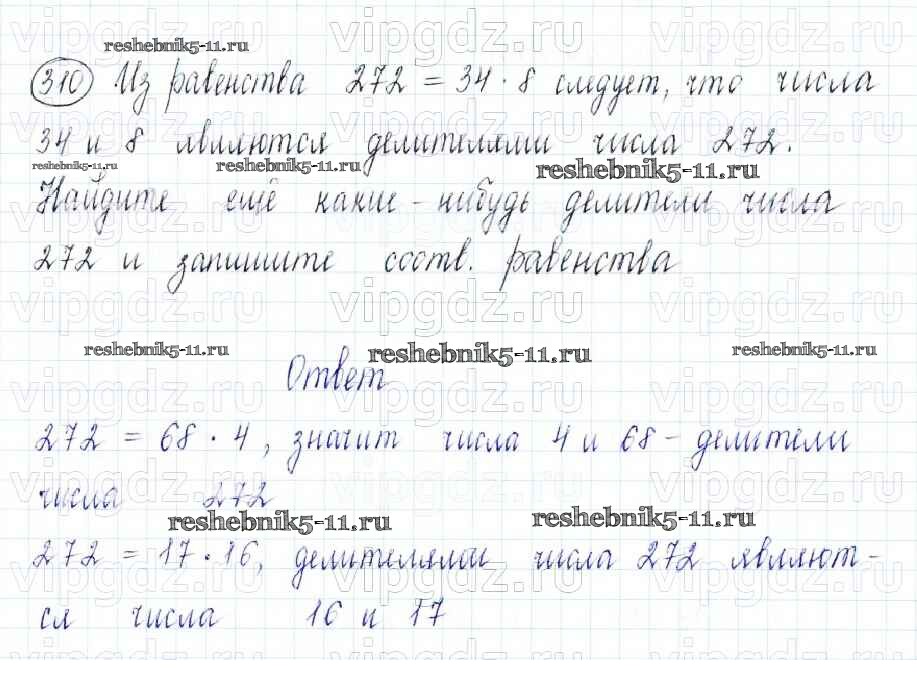 reshebnik5-11.ru
310 Из равенства 272 = 34 · 8 следует, что числа
34 и 8 являются делителями числа 272.
reshebnik5-11.ru reshebnik5-11.ru reshebnik5-11.ru
Найдите ещё какие-нибудь делители числа
272 и запишите соотв. равенства
vipgdz.ru vipgdz.ru vipgdz.ru
reshebnik5-11.ru reshebnik5-11.ru reshebnik5-11.ru
Ответ
272 = 68 · 4, значит числа 4 и 68 - делители
числа 272
reshebnik5-11.ru reshebnik5-11.ru
272 = 17 · 16, делителями числа 272 являют-
ся числа 16 и 17